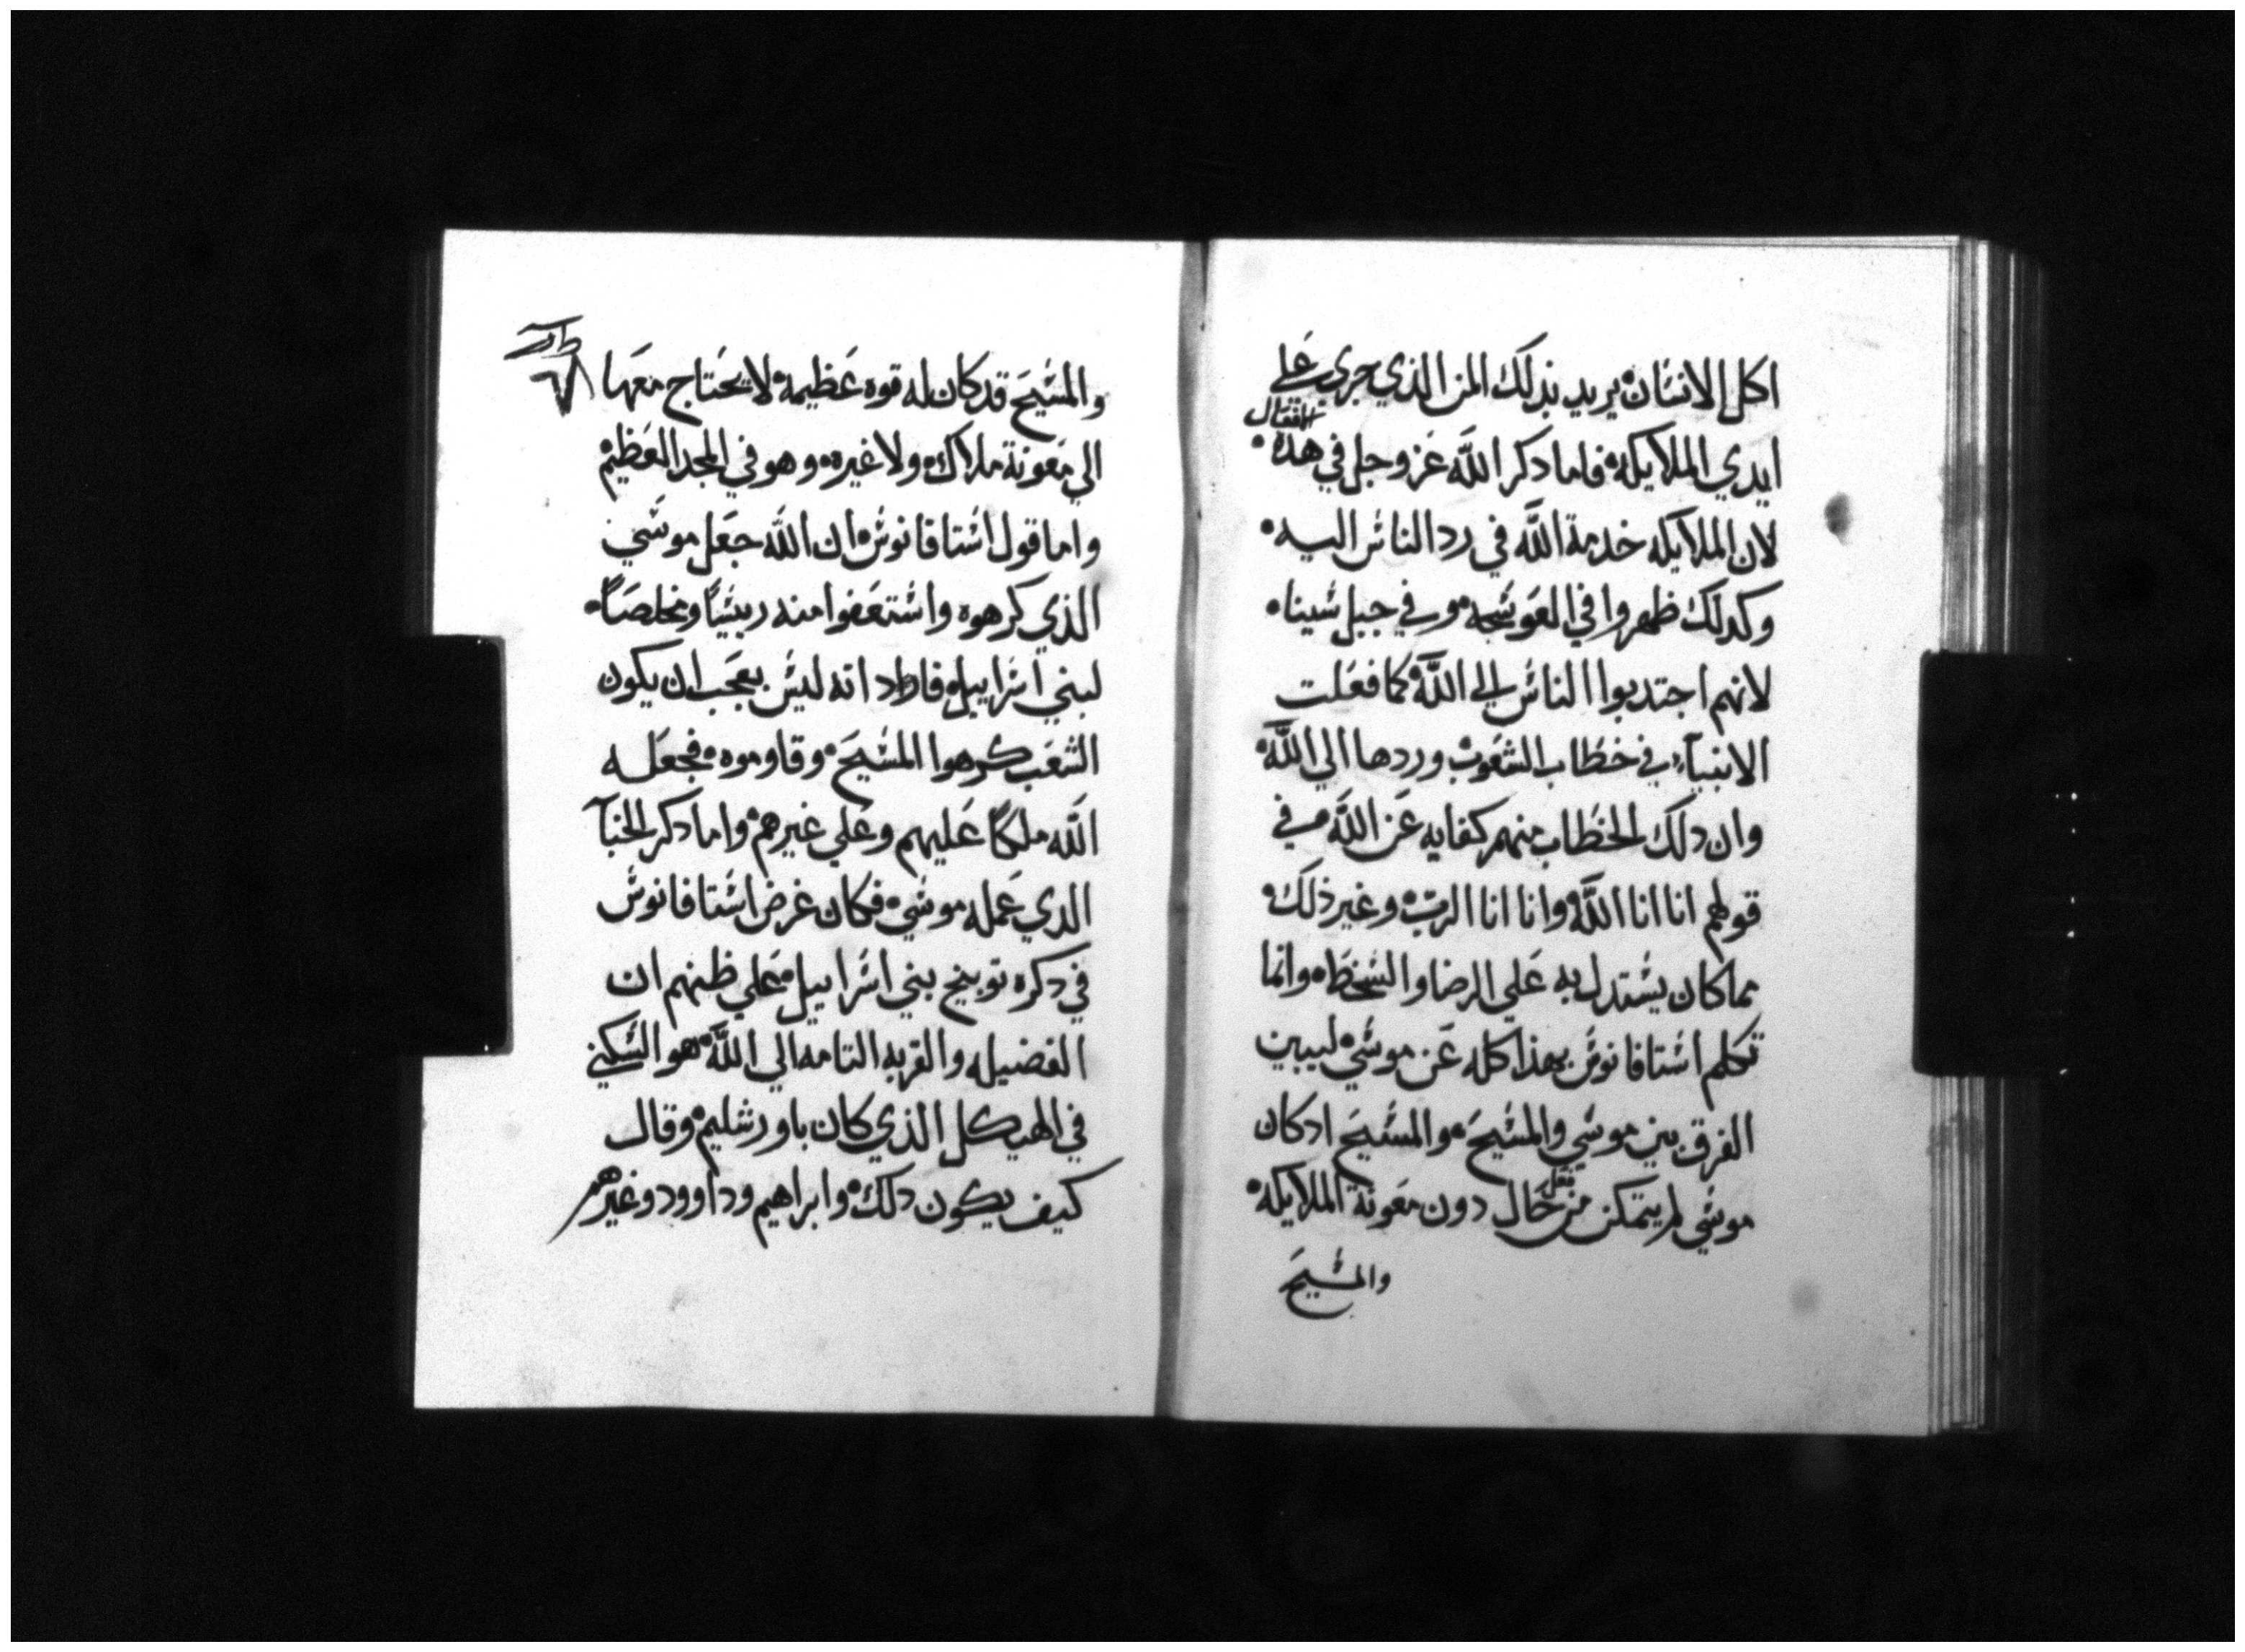 اكل الانسان يريد بذلك المن الذي جري علي
ايدي الملايكه فاما دكر الله عز وجل في هده
الافعال
لان الملايكه خدمة الله في رد الناس اليه
وكدلك ظهروا في العوسجه وفي جبل سينا
لانهم اجتدبوا الناس الي الله كما فعلت
الانبيآء في خطاب الشعوب وردها الي الله
وان دلك الخطاب منهم كفايه عن الله في
قولهم انا انا الله وانا انا الرب وغير ذلك
مما كان يستدل به علي الرضا والسخط وانما
تكلم استافانوس بهذا كله عن موسي ليبين
الفرق بين موسي والمسيح والمسيح ادكان
موسي لم يتمكن من فعل حال دون معونة الملايكه
والمسيح
والمسيح قد كان له قوه عظيمه لا يحتاج معها
الي معونة ملاك ولا غيره وهو في المجد العظيم
واما قول استافانوس ان الله جعل موسي
الذي كرهوه واستعفوا منه رييسًا ومخلصًا
لبني اسراييل فاراد انه ليس بعجب ان يكون
الشعب كرهوا المسيح وقاوموه فجعله
الله ملكًا عليهم وعلي غيرهم واما دكر الخبآ
الدي عمله موسي فكان غرض استافانوس
في دكره توبيخ بني اسراييل علي ظنهم ان
الفضيله والقربه التامه الي الله هو السكني
في الهيكل الذي كان باورشليم وقال
كيف يكون دلك وابراهيم وداوود وغيرهم